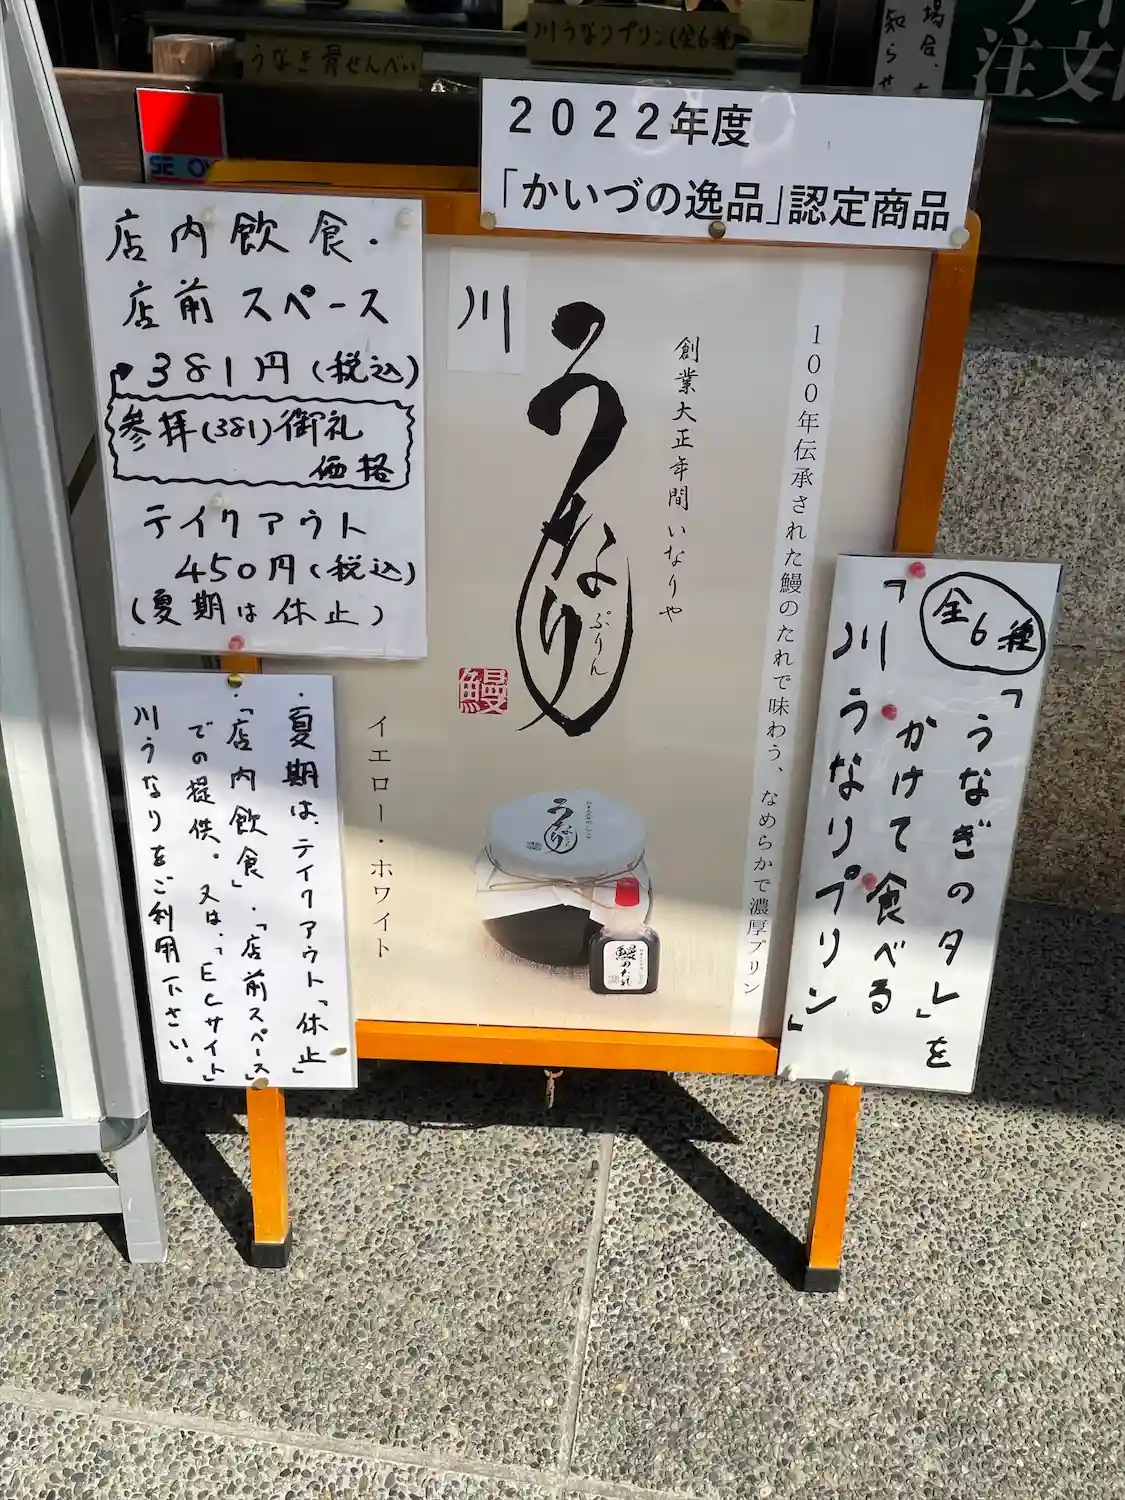 うなぎ骨せんべい
川うなりプリン(全6種)
場合、
知らせ
注文
2022年度
「かいづの逸品」認定商品
店内飲食・
店前スペース
381円(税込)
参拝(381)御礼
価格
テイクアウト
450円(税込)
(夏期は休止)
川
うなり
ぷりん
鰻
創業大正年間いなりや
100年伝承された鰻のたれで味わう、なめらかで濃厚プリン
イエロー・ホワイト
うなり
鰻のたれ
全6種
「うなぎのタレ」を
かけて食べる
「川うなりプリン」
・夏期は、テイクアウト「休止」
・「店内飲食」・「店前スペース」
での提供。又は、「ECサイト」
川うなりをご利用下さい。